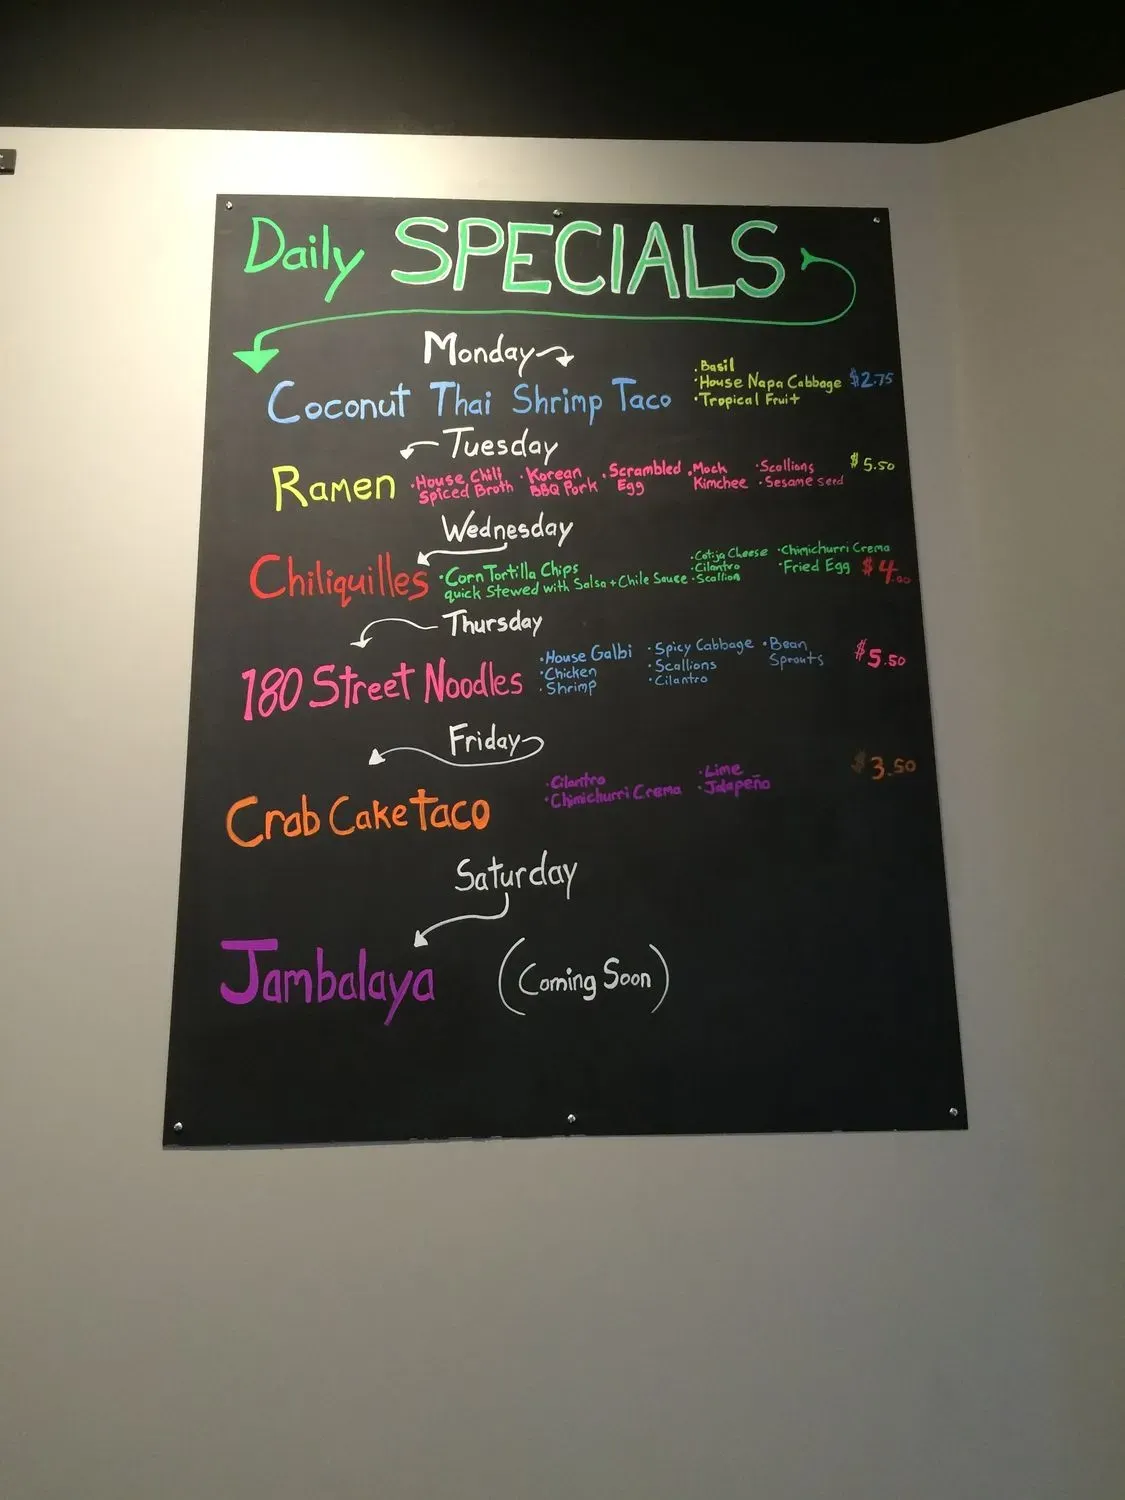 Daily SPECIALS
Monday
Coconut Thai Shrimp Taco
· Basil
· House Napa Cabbage
· Tropical Fruit
$2.75
Tuesday
Ramen
· House Chili
Spiced Broth
· Korean
BBQ Pork
· Scrambled
Egg
· Mock
Kimchee
· Scallions
· Sesame seed
$5.50
Wednesday
Chiliquilles
· Corn Tortilla Chips
quick Stewed with Salsa + Chile Sauce
· Cotija Cheese
· Cilantro
· Scallion
· Chimichurri Crema
· Fried Egg
$4.00
Thursday
180 Street Noodles
· House Galbi
· Chicken
· Shrimp
· Spicy Cabbage
· Scallions
· Cilantro
· Bean
Sprouts
$5.50
Friday
Crab Cake Taco
· Cilantro
· Chimichurri Crema
· Lime
· Jalapeño
$3.50
Saturday
Jambalaya
(Coming Soon)